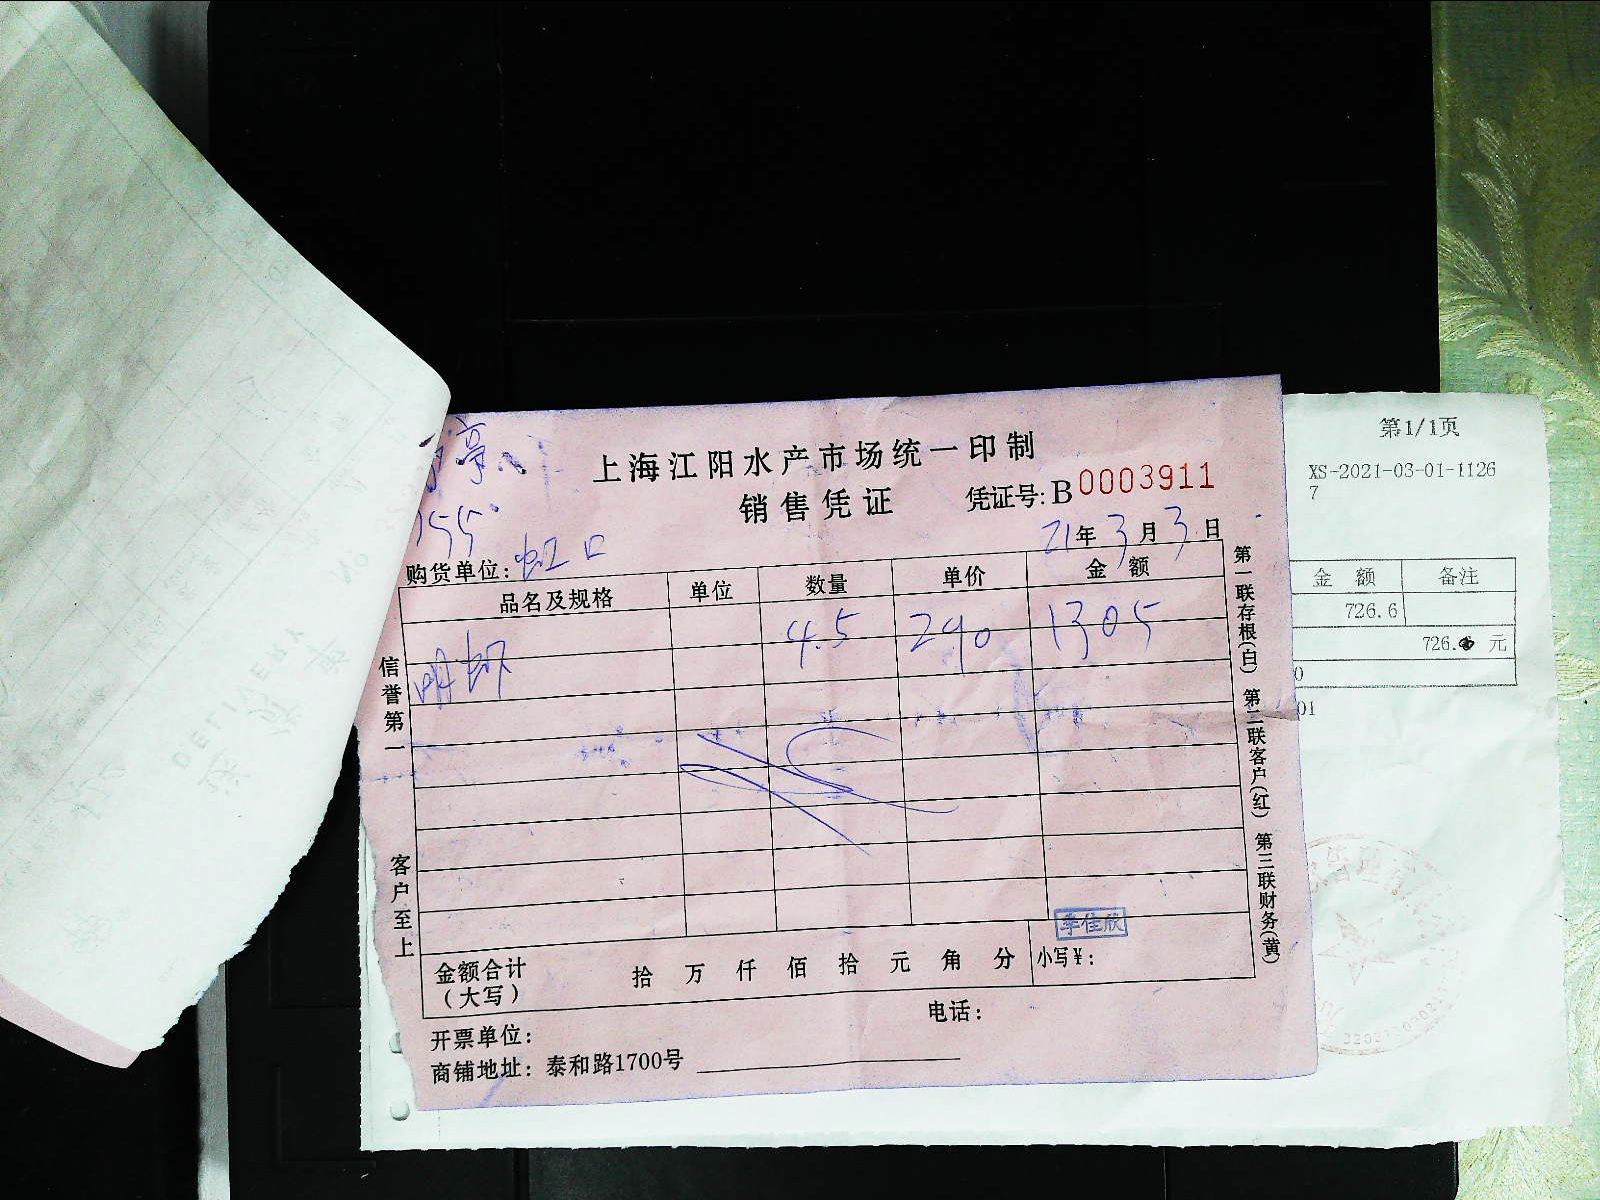 上海江阳水产市场统一印制
销售凭证 凭证号: B0003911
155
21年3月3日
购货单位: 虹口
品名及规格 单位 数量 单价 金额
明虾 4.5 290 1305
信誉第一
客户至上
第一联存根(白) 第二联客户(红) 第三联财务(黄)
李佳欣
金额合计(大写) 拾 万 仟 佰 拾 元 角 分 小写¥:
开票单位: 电话:
商铺地址: 泰和路1700号
第1/1页
XS-2021-03-01-1126
7
金 额 备注
726.6
726. 元
0
01
DELIVERY